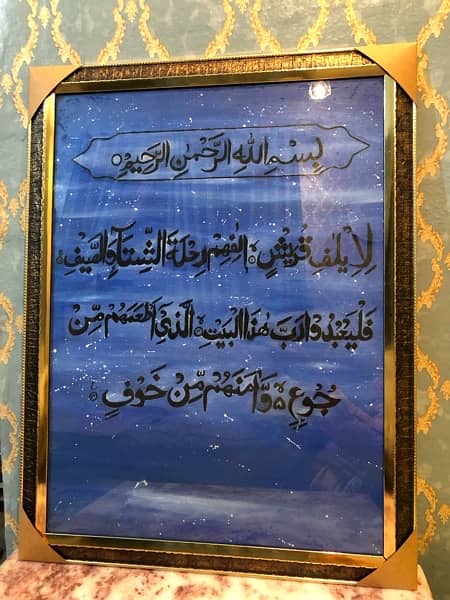 بِسْمِ اللهِ الرَّحْمٰنِ الرَّحِيْمِ
لِاِيْلٰفِ قُرَيْشٍ اٖلٰفِهِمْ رِحْلَةَ الشِّتَآءِ وَالصَّيْفِ
فَلْيَعْبُدُوْا رَبَّ هٰذَا الْبَيْتِ الَّذِيْٓ اَطْعَمَهُمْ مِّنْ
جُوْعٍ وَّاٰمَنَهُمْ مِّنْ خَوْفٍ